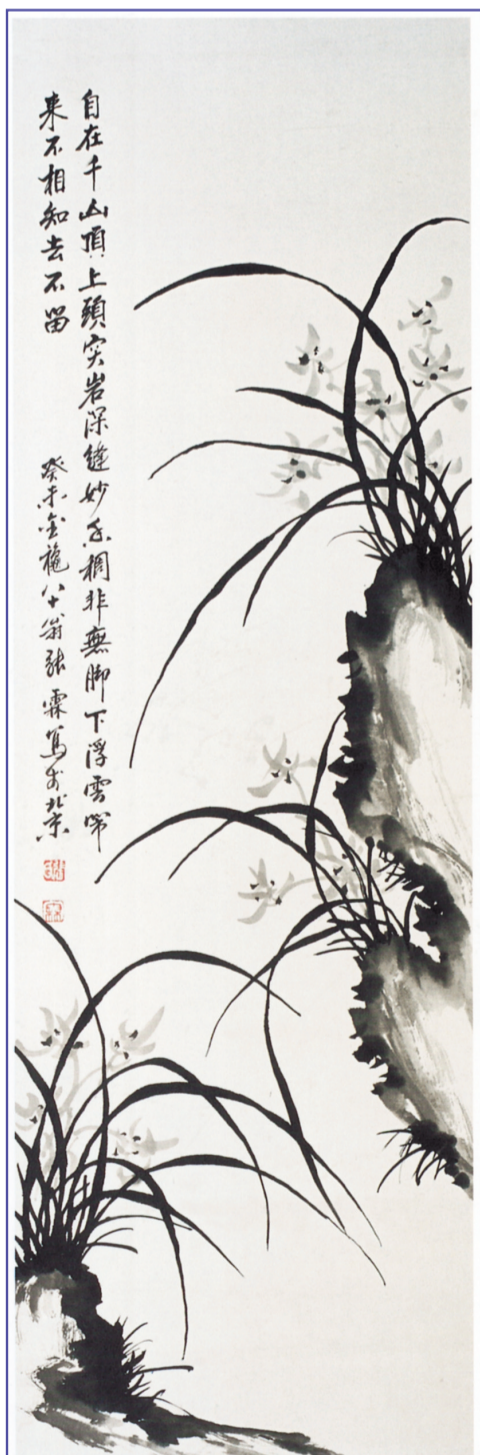 自在千山頂上頭突岩深縫妙香稠非無脚下浮雲鬧
来不相知去不留
癸未金穐八十翁張霖寫於北京